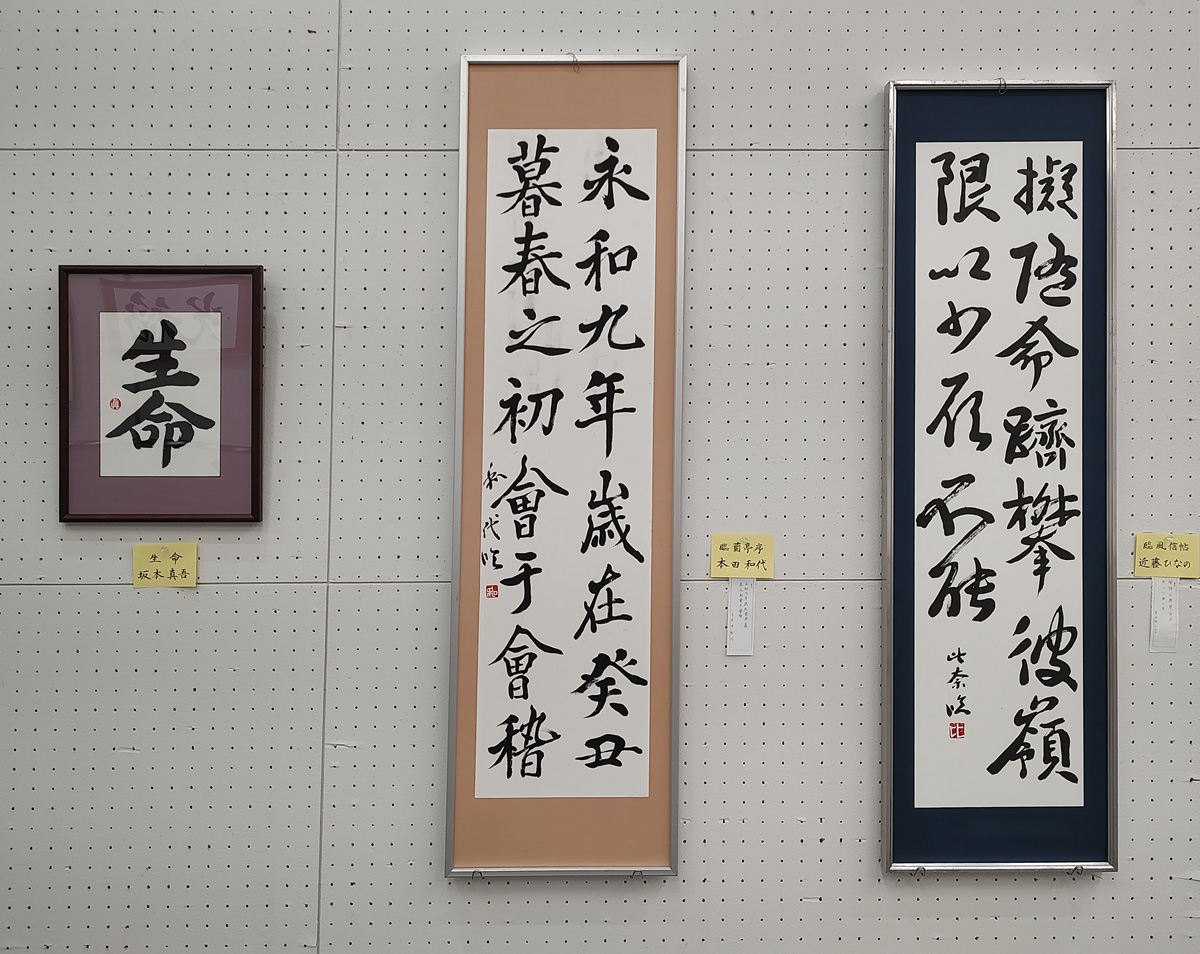 生
命
生命
坂本真吾
永和九年歳在癸丑
暮春之初會于會稽
和代臨
和
臨蘭亭序
本田和代
擬随命躋攀彼嶺
限以少願不能
比奈臨
比
臨風信帖
近藤ひなの